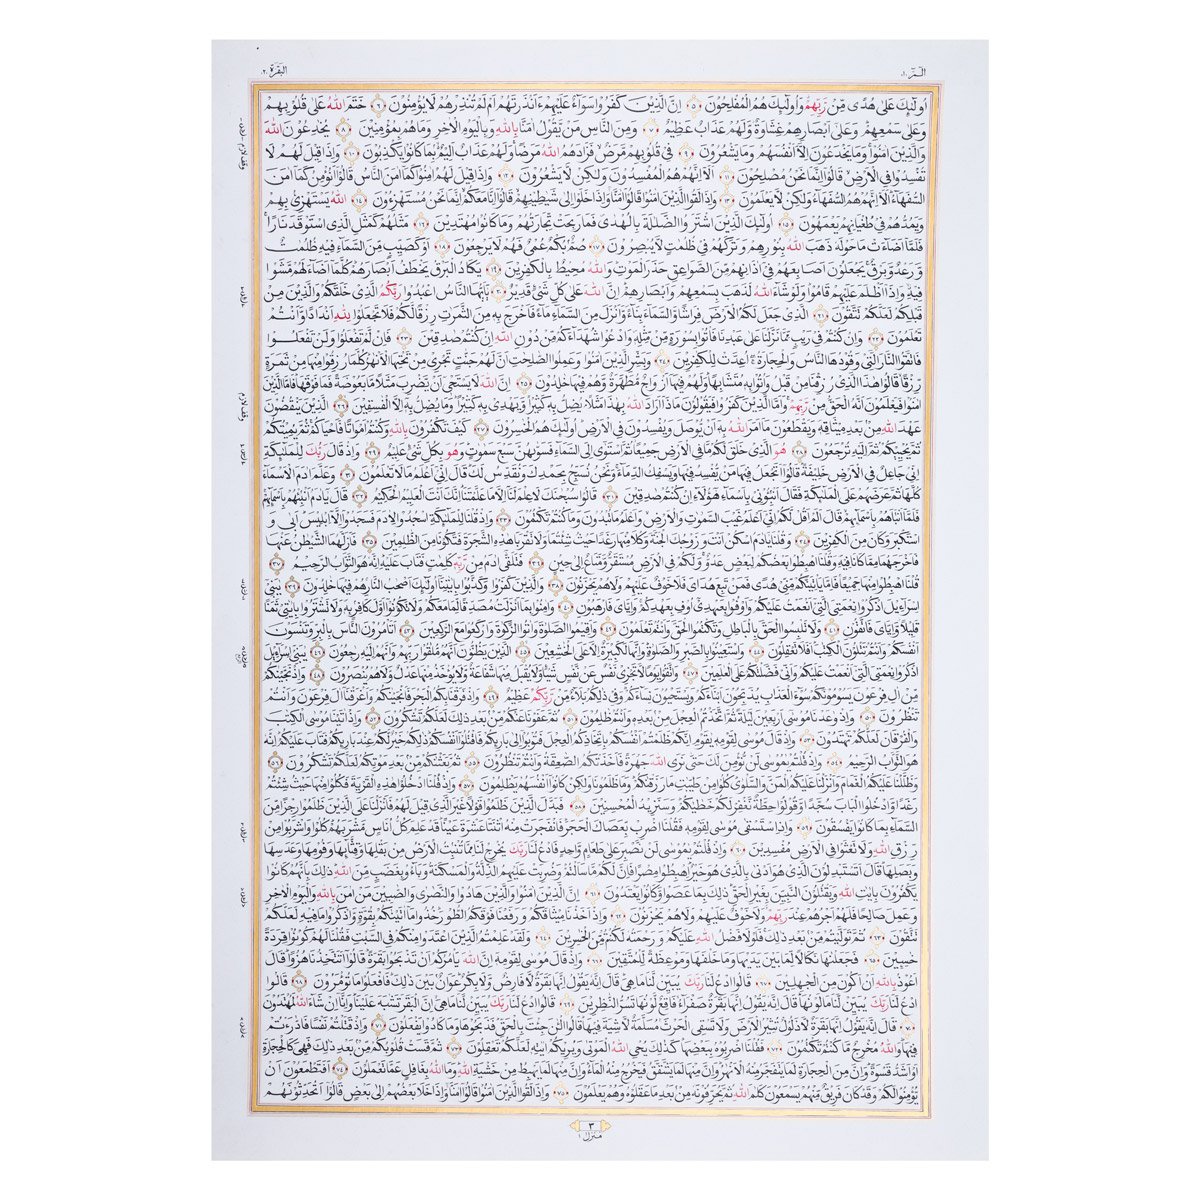 الٓمّٓ ١
البقرة ٢
اولئك على هدى من ربهم واولئك هم المفلحون ﴿٥﴾ ان الذين كفروا سواء عليهم ءانذرتهم ام لم تنذرهم لا يؤمنون ﴿٦﴾ ختم الله على قلوبهم
وعلى سمعهم وعلى ابصارهم غشاوة ولهم عذاب عظيم ﴿٧﴾ ومن الناس من يقول امنا بالله وباليوم الاخر وما هم بمؤمنين ﴿٨﴾ يخدعون الله
والذين امنوا وما يخدعون الا انفسهم وما يشعرون ﴿٩﴾ في قلوبهم مرض فزادهم الله مرضا ولهم عذاب اليم بما كانوا يكذبون ﴿١٠﴾ واذا قيل لهم لا
تفسدوا في الارض قالوا انما نحن مصلحون ﴿١١﴾ الا انهم هم المفسدون ولكن لا يشعرون ﴿١٢﴾ واذا قيل لهم امنوا كما امن الناس قالوا انؤمن كما امن
السفهاء الا انهم هم السفهاء ولكن لا يعلمون ﴿١٣﴾ واذا لقوا الذين امنوا قالوا امنا واذا خلوا الى شيطينهم قالوا انا معكم انما نحن مستهزءون ﴿١٤﴾ الله يستهزئ بهم
ويمدهم في طغيانهم يعمهون ﴿١٥﴾ اولئك الذين اشتروا الضللة بالهدى فما ربحت تجارتهم وما كانوا مهتدين ﴿١٦﴾ مثلهم كمثل الذي استوقد نارا
فلما اضاءت ما حوله ذهب الله بنورهم وتركهم في ظلمت لا يبصرون ﴿١٧﴾ صم بكم عمي فهم لا يرجعون ﴿١٨﴾ او كصيب من السماء فيه ظلمت
ورعد وبرق يجعلون اصابعهم في اذانهم من الصواعق حذر الموت والله محيط بالكفرين ﴿١٩﴾ يكاد البرق يخطف ابصارهم كلما اضاء لهم مشوا
فيه واذا اظلم عليهم قاموا ولو شاء الله لذهب بسمعهم وابصارهم ان الله على كل شئ قدير ﴿٢٠﴾ يايها الناس اعبدوا ربكم الذي خلقكم والذين من
قبلكم لعلكم تتقون ﴿٢١﴾ الذي جعل لكم الارض فراشا والسماء بناء وانزل من السماء ماء فاخرج به من الثمرت رزقا لكم فلا تجعلوا لله اندادا وانتم
تعلمون ﴿٢٢﴾ وان كنتم في ريب مما نزلنا على عبدنا فأتوا بسورة من مثله وادعوا شهداءكم من دون الله ان كنتم صدقين ﴿٢٣﴾ فان لم تفعلوا ولن تفعلوا
فاتقوا النار التي وقودها الناس والحجارة اعدت للكفرين ﴿٢٤﴾ وبشر الذين امنوا وعملوا الصلحت ان لهم جنت تجري من تحتها الانهر كلما رزقوا منها من ثمرة
رزقا قالوا هذا الذي رزقنا من قبل واتوا به متشابها ولهم فيها ازواج مطهرة وهم فيها خلدون ﴿٢٥﴾ ان الله لا يستحي ان يضرب مثلا ما بعوضة فما فوقها فاما الذين
امنوا فيعلمون انه الحق من ربهم واما الذين كفروا فيقولون ماذا اراد الله بهذا مثلا يضل به كثيرا ويهدي به كثيرا وما يضل به الا الفسقين ﴿٢٦﴾ الذين ينقضون
عهد الله من بعد ميثاقه ويقطعون ما امر الله به ان يوصل ويفسدون في الارض اولئك هم الخسرون ﴿٢٧﴾ كيف تكفرون بالله وكنتم امواتا فاحياكم ثم يميتكم
ثم يحييكم ثم اليه ترجعون ﴿٢٨﴾ هو الذي خلق لكم ما في الارض جميعا ثم استوى الى السماء فسوىهن سبع سموت وهو بكل شئ عليم ﴿٢٩﴾ واذ قال ربك للملئكة
اني جاعل في الارض خليفة قالوا اتجعل فيها من يفسد فيها ويسفك الدماء ونحن نسبح بحمدك ونقدس لك قال اني اعلم ما لا تعلمون ﴿٣٠﴾ وعلم ادم الاسماء
كلها ثم عرضهم على الملئكة فقال انبئوني باسماء هؤلاء ان كنتم صدقين ﴿٣١﴾ قالوا سبحنك لا علم لنا الا ما علمتنا انك انت العليم الحكيم ﴿٣٢﴾ قال يادم انبئهم باسمائهم
فلما انباهم باسمائهم قال الم اقل لكم اني اعلم غيب السموت والارض واعلم ما تبدون وما كنتم تكتمون ﴿٣٣﴾ واذ قلنا للملئكة اسجدوا لادم فسجدوا الا ابليس ابى و
استكبر وكان من الكفرين ﴿٣٤﴾ وقلنا يادم اسكن انت وزوجك الجنة وكلا منها رغدا حيث شئتما ولا تقربا هذه الشجرة فتكونا من الظلمين ﴿٣٥﴾ فازلهما الشيطن عنها
فاخرجهما مما كانا فيه وقلنا اهبطوا بعضكم لبعض عدو ولكم في الارض مستقر ومتاع الى حين ﴿٣٦﴾ فتلقى ادم من ربه كلمت فتاب عليه انه هو التواب الرحيم ﴿٣٧﴾
قلنا اهبطوا منها جميعا فاما ياتينكم مني هدى فمن تبع هداي فلا خوف عليهم ولا هم يحزنون ﴿٣٨﴾ والذين كفروا وكذبوا بايتنا اولئك اصحب النار هم فيها خلدون ﴿٣٩﴾ يبني
اسراءيل اذكروا نعمتي التي انعمت عليكم واوفوا بعهدي اوف بعهدكم واياي فارهبون ﴿٤٠﴾ وامنوا بما انزلت مصدقا لما معكم ولا تكونوا اول كافر به ولا تشتروا بايتي ثمنا
قليلا واياي فاتقون ﴿٤١﴾ ولا تلبسوا الحق بالباطل وتكتموا الحق وانتم تعلمون ﴿٤٢﴾ واقيموا الصلوة واتوا الزكوة واركعوا مع الركعين ﴿٤٣﴾ اتامرون الناس بالبر وتنسون
انفسكم وانتم تتلون الكتب افلا تعقلون ﴿٤٤﴾ واستعينوا بالصبر والصلوة وانها لكبيرة الا على الخشعين ﴿٤٥﴾ الذين يظنون انهم ملقوا ربهم وانهم اليه رجعون ﴿٤٦﴾ يبني اسراءيل
اذكروا نعمتي التي انعمت عليكم واني فضلتكم على العلمين ﴿٤٧﴾ واتقوا يوما لا تجزي نفس عن نفس شيئا ولا يقبل منها شفاعة ولا يؤخذ منها عدل ولا هم ينصرون ﴿٤٨﴾ واذ نجينكم
من ال فرعون يسومونكم سوء العذاب يذبحون ابناءكم ويستحيون نساءكم وفي ذلكم بلاء من ربكم عظيم ﴿٤٩﴾ واذ فرقنا بكم البحر فانجينكم واغرقنا ال فرعون وانتم
تنظرون ﴿٥٠﴾ واذ وعدنا موسى اربعين ليلة ثم اتخذتم العجل من بعده وانتم ظلمون ﴿٥١﴾ ثم عفونا عنكم من بعد ذلك لعلكم تشكرون ﴿٥٢﴾ واذ اتينا موسى الكتب
والفرقان لعلكم تهتدون ﴿٥٣﴾ واذ قال موسى لقومه يقوم انكم ظلمتم انفسكم باتخاذكم العجل فتوبوا الى بارئكم فاقتلوا انفسكم ذلكم خير لكم عند بارئكم فتاب عليكم انه
هو التواب الرحيم ﴿٥٤﴾ واذ قلتم يموسى لن نؤمن لك حتى نرى الله جهرة فاخذتكم الصعقة وانتم تنظرون ﴿٥٥﴾ ثم بعثنكم من بعد موتكم لعلكم تشكرون ﴿٥٦﴾
وظللنا عليكم الغمام وانزلنا عليكم المن والسلوى كلوا من طيبت ما رزقنكم وما ظلمونا ولكن كانوا انفسهم يظلمون ﴿٥٧﴾ واذ قلنا ادخلوا هذه القرية فكلوا منها حيث شئتم
رغدا وادخلوا الباب سجدا وقولوا حطة نغفر لكم خطيكم وسنزيد المحسنين ﴿٥٨﴾ فبدل الذين ظلموا قولا غير الذي قيل لهم فانزلنا على الذين ظلموا رجزا من
السماء بما كانوا يفسقون ﴿٥٩﴾ واذ استسقى موسى لقومه فقلنا اضرب بعصاك الحجر فانفجرت منه اثنتا عشرة عينا قد علم كل اناس مشربهم كلوا واشربوا من
رزق الله ولا تعثوا في الارض مفسدين ﴿٦٠﴾ واذ قلتم يموسى لن نصبر على طعام واحد فادع لنا ربك يخرج لنا مما تنبت الارض من بقلها وقثائها وفومها وعدسها
وبصلها قال اتستبدلون الذي هو ادنى بالذي هو خير اهبطوا مصرا فان لكم ما سالتم وضربت عليهم الذلة والمسكنة وباءو بغضب من الله ذلك بانهم كانوا
يكفرون بايت الله ويقتلون النبين بغير الحق ذلك بما عصوا وكانوا يعتدون ﴿٦١﴾ ان الذين امنوا والذين هادوا والنصرى والصبين من امن بالله واليوم الاخر
وعمل صالحا فلهم اجرهم عند ربهم ولا خوف عليهم ولا هم يحزنون ﴿٦٢﴾ واذ اخذنا ميثاقكم ورفعنا فوقكم الطور خذوا ما اتينكم بقوة واذكروا ما فيه لعلكم
تتقون ﴿٦٣﴾ ثم توليتم من بعد ذلك فلولا فضل الله عليكم ورحمته لكنتم من الخسرين ﴿٦٤﴾ ولقد علمتم الذين اعتدوا منكم في السبت فقلنا لهم كونوا قردة
خسئين ﴿٦٥﴾ فجعلنها نكالا لما بين يديها وما خلفها وموعظة للمتقين ﴿٦٦﴾ واذ قال موسى لقومه ان الله يامركم ان تذبحوا بقرة قالوا اتتخذنا هزوا قال
اعوذ بالله ان اكون من الجهلين ﴿٦٧﴾ قالوا ادع لنا ربك يبين لنا ما هي قال انه يقول انها بقرة لا فارض ولا بكر عوان بين ذلك فافعلوا ما تؤمرون ﴿٦٨﴾ قالوا
ادع لنا ربك يبين لنا ما لونها قال انه يقول انها بقرة صفراء فاقع لونها تسر النظرين ﴿٦٩﴾ قالوا ادع لنا ربك يبين لنا ما هي ان البقر تشبه علينا وانا ان شاء الله لمهتدون
﴿٧٠﴾ قال انه يقول انها بقرة لا ذلول تثير الارض ولا تسقي الحرث مسلمة لا شية فيها قالوا الن جئت بالحق فذبحوها وما كادوا يفعلون ﴿٧١﴾ واذ قتلتم نفسا فادرءتم
فيها والله مخرج ما كنتم تكتمون ﴿٧٢﴾ فقلنا اضربوه ببعضها كذلك يحي الله الموتى ويريكم ايته لعلكم تعقلون ﴿٧٣﴾ ثم قست قلوبكم من بعد ذلك فهي كالحجارة
او اشد قسوة وان من الحجارة لما يتفجر منه الانهر وان منها لما يشقق فيخرج منه الماء وان منها لما يهبط من خشية الله وما الله بغافل عما تعملون ﴿٧٤﴾ افتطمعون ان
يؤمنوا لكم وقد كان فريق منهم يسمعون كلم الله ثم يحرفونه من بعد ما عقلوه وهم يعلمون ﴿٧٥﴾ واذا لقوا الذين امنوا قالوا امنا واذا خلا بعضهم الى بعض قالوا اتحدثونهم
٣
منزل ١
وقف لازم
وقف لازم